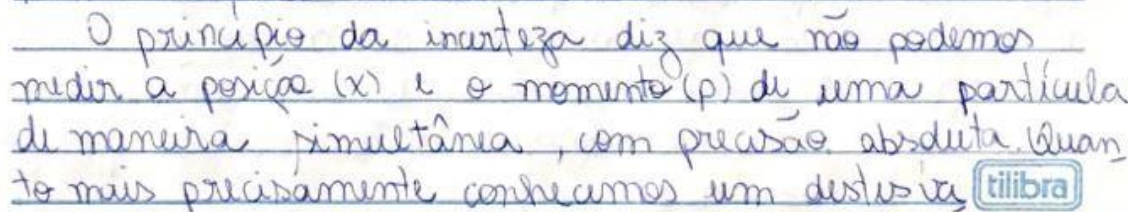 O princípio da incerteza diz que não podemos
medir a posição (x) e o momento (p) de uma partícula
de maneira simultânea, com precisão absoluta. Quan
to mais precisamente conhecemos um destes va
tilibra